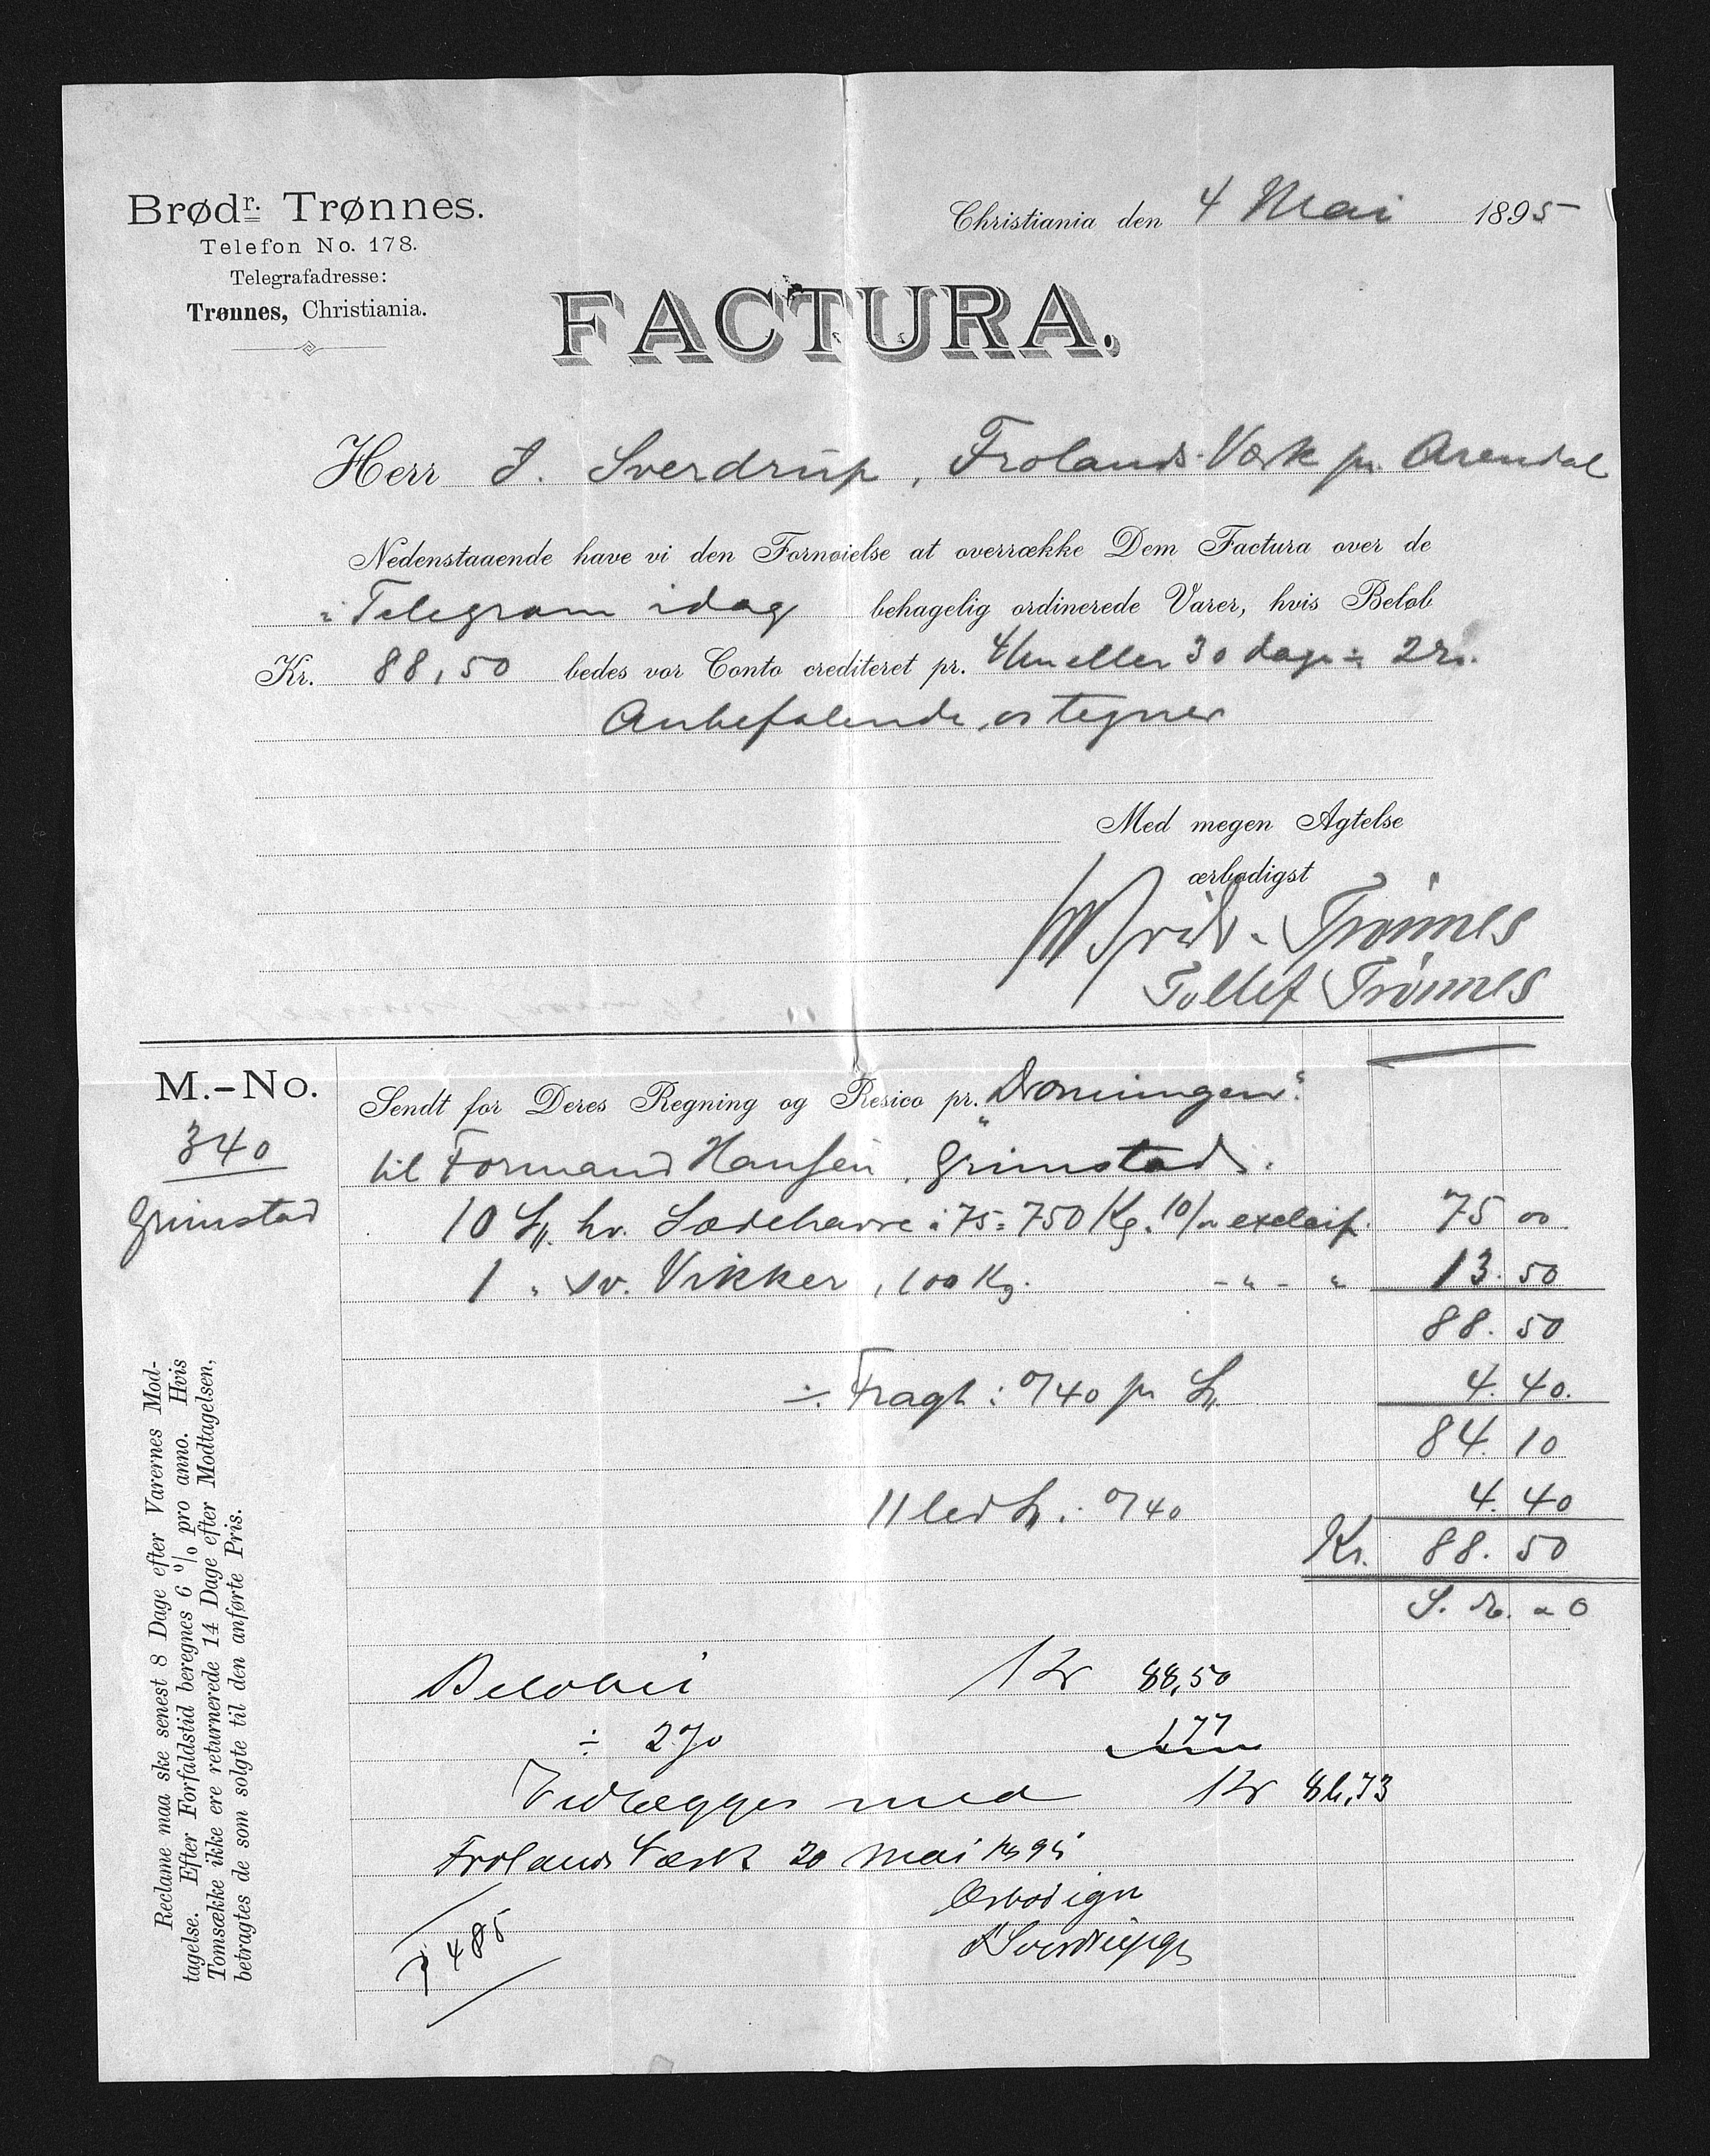 Brødr. Trønnes.
Telefon No. 178.
Telegrafadresse:
Trønnes, Christiania.
Christiania den 4 Mai 1895
FACTURA.
Herr J. Sverdrup, Frolands Værk pr. Arendal
Nedenstaaende have vi den Fornøielse at overrække Dem Factura over de
i Telegram idag behagelig ordinerede Varer, hvis Beløb
Kr. 88,50 bedes vor Conto crediteret pr. 4/m eller 30 dage ÷ 2%.
Anbefalende os tegner
Med megen Agtelse
ærbødigst
Brødr. Trønnes
Tollef Trønnes
M.-No.
340
Grimstad
Sendt for Deres Regning og Resico pr. „Dronningen"
til Formand Hansen, Grimstad.
10 hv. Sædehavre i 75 = 750 Kg. 10/ 75 00
1 " sv. Vikker, 100 Kg. - " - " 13.50
88.50
÷ Fragt: 0/40 pr 4.40.
84.10
11 0/40 4.40
Kr. 88.50
S. E. & O
Beløbet Kr 88,50
÷ 2% 1,77
Vedlægges med Kr 86,73
Frolands Værk 20 Mai 1895
Ærbødigst
J Sverdrup
485
Reclame maa ske senest 8 Dage efter Varernes Mod-
tagelse. Efter Forfaldstid beregnes 6 % pro anno. Hvis
Tomsække ikke ere returnerede 14 Dage efter Modtagelsen,
betragtes de som solgte til den anførte Pris.